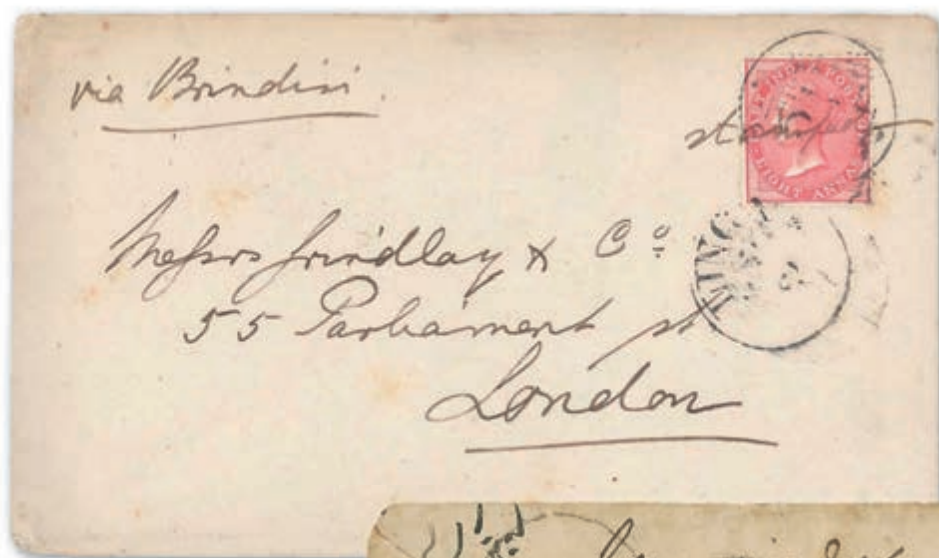 via Brindisi.
stamped
EAST INDIA POSTAGE
EIGHT ANNAS
Messrs Grindlay & Co
55 Parliament st
London
LINGA